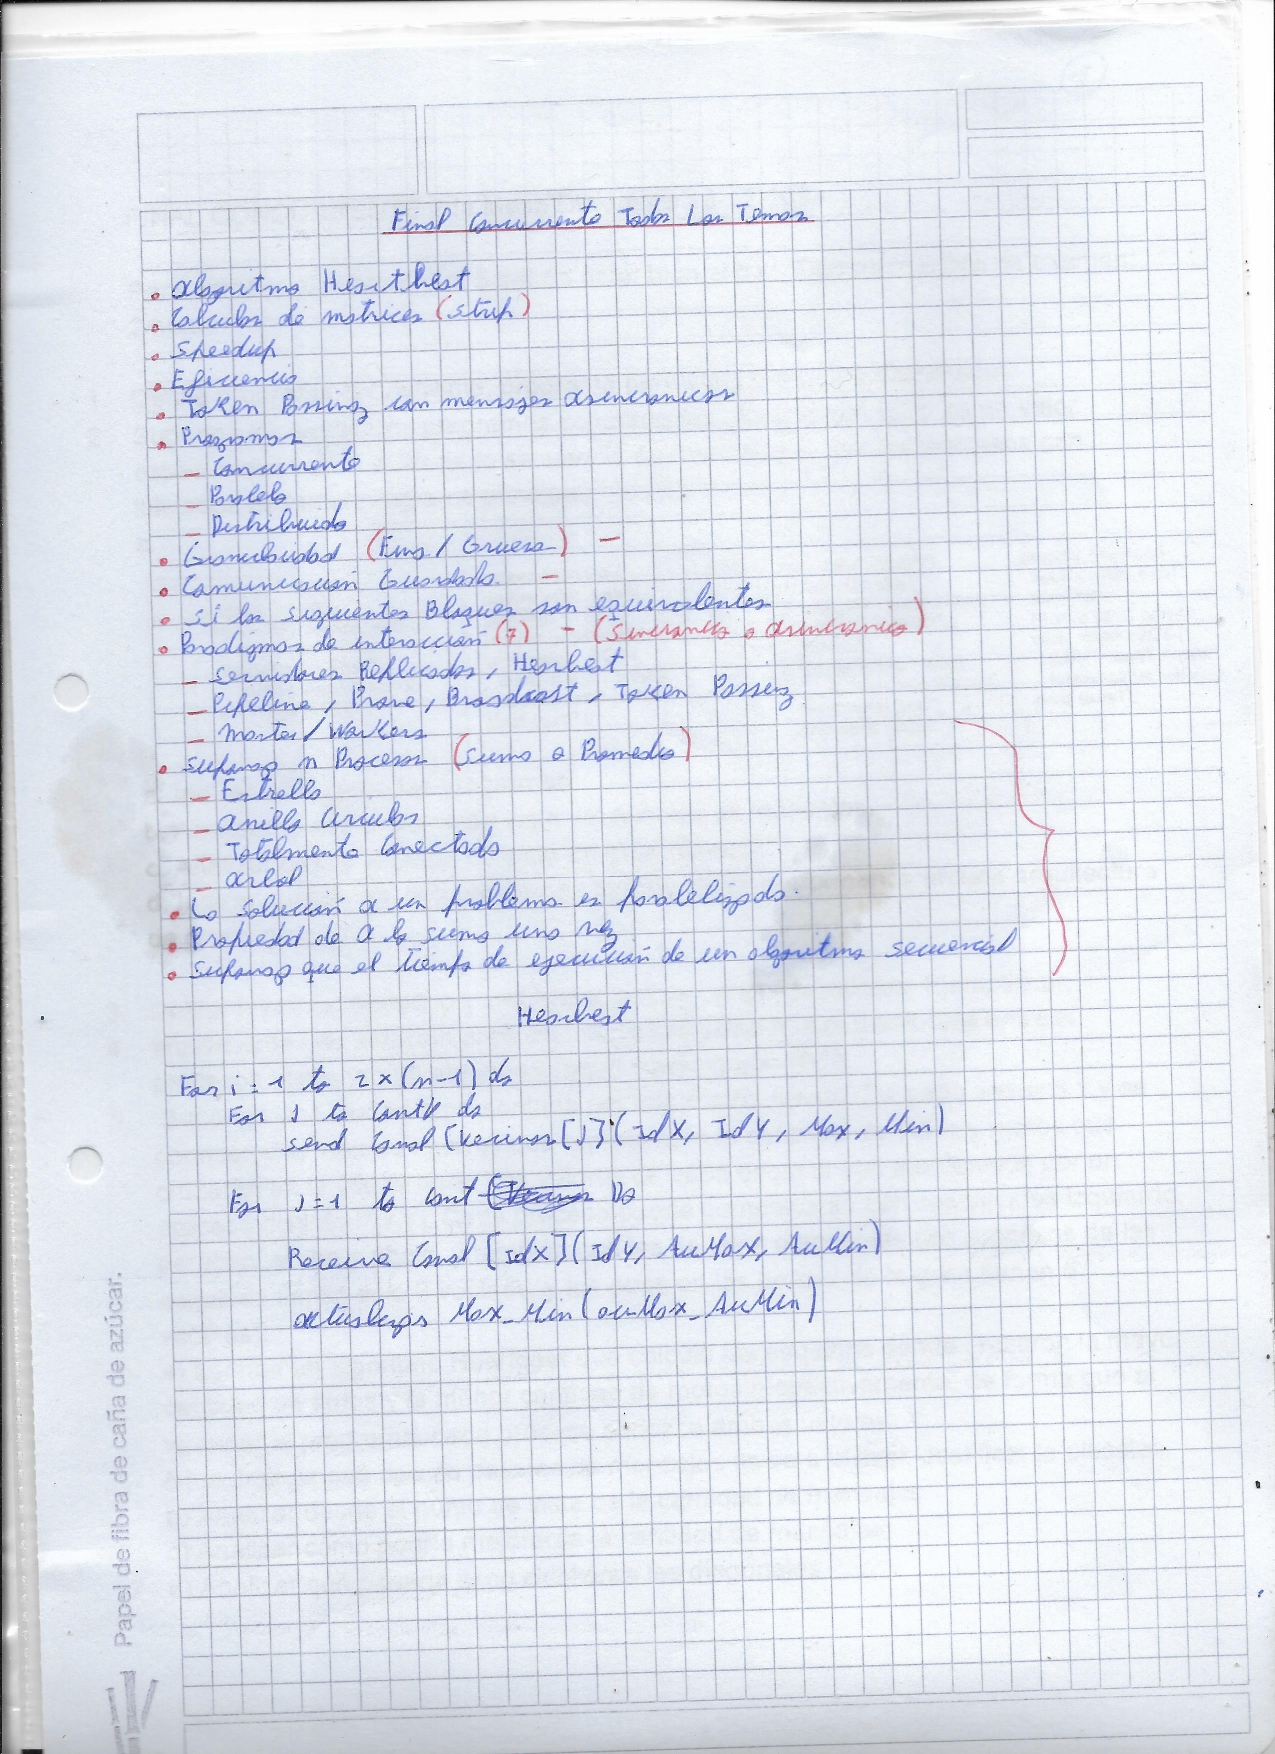 Final Concurrente Todos Los Temas
• Algoritmo Heartbeat
• Calculos de matrices (strip)
• Speedup
• Eficiencia
• Token Passing con mensajes asincronicos
• Programas
– Concurrente
– Paralelo
– Distribuido
• Granularidad (Fina / Gruesa) –
• Comunicación Guardada –
• Si los siguientes Bloques son equivalentes
• Paradigmas de interacción (7) – (Sincronico o asincronico)
– Servidores Replicados, Hearbeat
– Pipeline, Prove, Broadcast, Token Passing
– Master / Workers
• Suponga n Procesos (Suma o Promedio)
– Estrella
– Anillo Circular
– Totalmente Conectado
– Arbol
• La solución a un problema es paralelizada.
• Propiedad de A lo sumo una vez
• Suponga que el tiempo de ejecución de un algoritmo secuencial
Hearbeat
For i = 1 to 2 x (n-1) do
For J to CantV do
send Canal [Vecinos [J]] (IdX, IdY, Max, Min)
For J = 1 to Cant Do
Receive Canal [IdX] (IdY, AuMax, AuMin)
Max_Min (auMax_AuMin)
Papel de fibra de caña de azúcar.